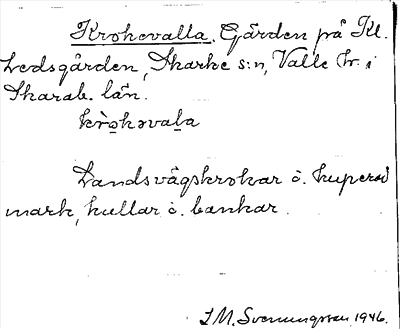 Krokevalla. Gärden på Kl.
Ledsgården, Skarke s:n, Valle hr. i
Skarab. län.
kròkevala
Landsvägskrokar o. kuperad
mark, kullar o. bankar.
J M. Svenungsson 1946.